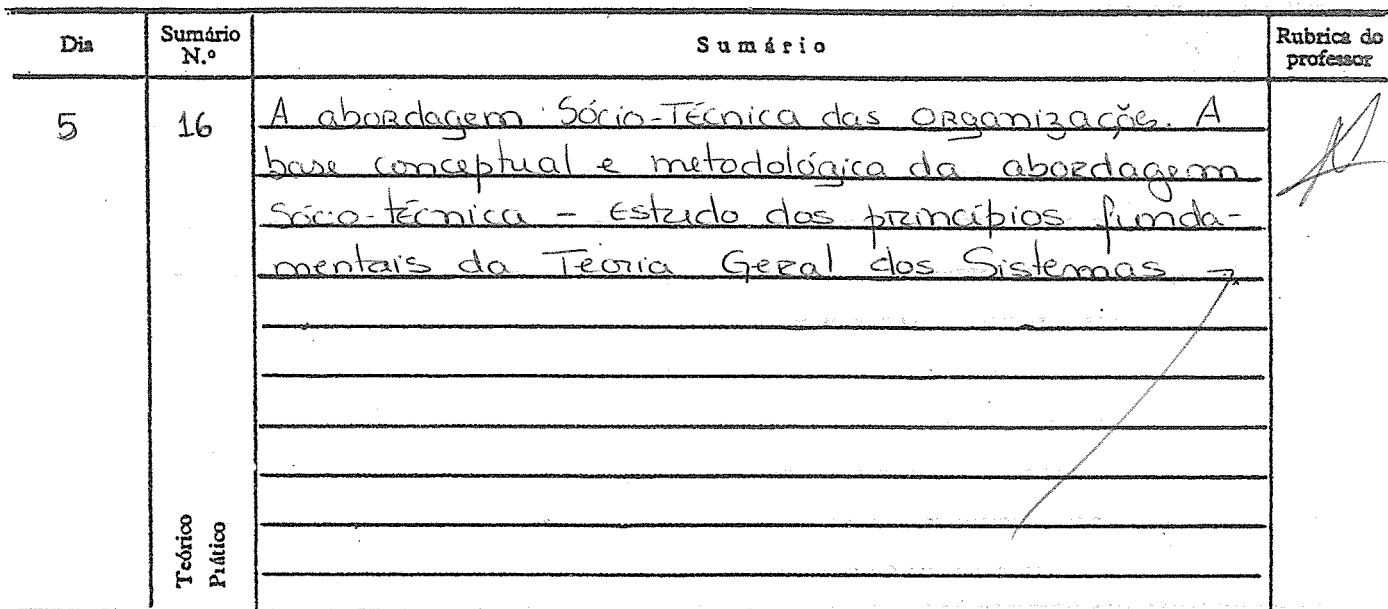 Dia
Sumário N.º
Sumário
Rubrica do professor
5
16
A abordagem Sócio-Técnica das organizações. A
base conceptual e metodológica da abordagem
sócio-técnica - Estudo dos princípios funda-
mentais da Teoria Geral dos Sistemas -.
Teórico
Prático